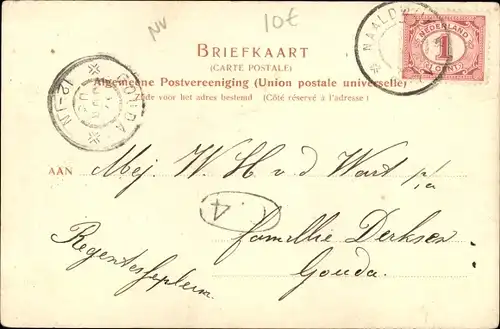 NV
10€
BRIEFKAART
(CARTE POSTALE)
Algemeene Postvereeniging (Union postale universelle)
Zijde voor het adres bestemd (Côté réservé à l'adresse)
NAALD
NEDERLAND
1
CENT
GOUDA
12-1N
AAN Mej. W H v d Wart p/a
4
famillie Derksen
Regentesseplein
Gouda.